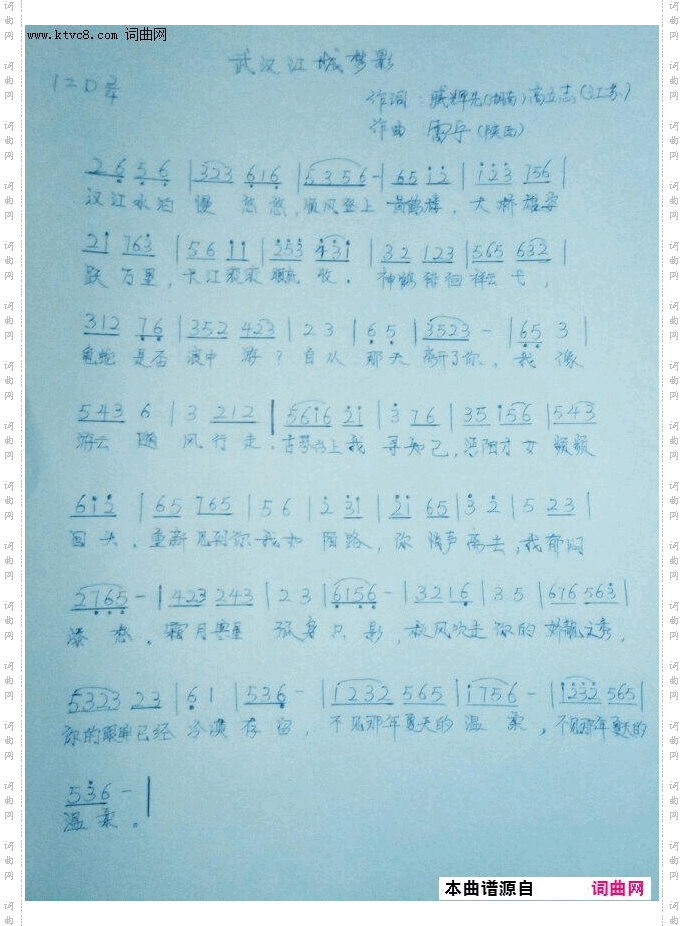 www.ktvc8.com 词曲网
武汉江城梦影
1=D 2/4
作词：滕辉先(湖南)高立志(江苏)
作曲：雷宇(陕西)
2 6 5 6 | 3 2 3 6 1 6 | 5 3 5 6 - | 6 5 1 2 | 1 2 3 7 5 6 |
汉江水泊 慢 悠 悠，顺风登上 黄鹤楼，大 桥 雄姿
2 1 7 6 3 | 5 6 1 1 | 2 5 3 4 3 1 | 3 2 1 2 3 | 5 6 5 6 3 2 |
跃 万 里，长江滚滚 眼底 收。神鹤徘徊 祥云 飞，
3 1 2 7 6 | 3 5 2 4 2 3 | 2 3 | 6 5 | 3 5 2 3 - | 6 5 3 |
龟蛇 是否 浪中 游？自从 那天 离开了你，我 像
5 4 3 6 | 3 2 1 2 | 5 6 1 6 2 1 | 3 7 6 | 3 5 1 5 6 | 5 4 3
游云 随 风 行 走，古琴台上我 寻知己，才女 频频
6 1 2 | 6 5 7 6 5 | 5 6 | 2 3 1 | 2 1 6 5 | 3 2 | 5 2 3 |
回 头，重新见到你我如 陌路，你 悄声 离去，我郁闷
2 7 6 5 - | 4 2 3 2 4 3 | 2 3 | 6 1 5 6 - | 3 2 1 6 | 3 5 | 6 7 6 5 6 3 |
添 愁。霜月 孤身 只 影，秋风吹走 你的
5 3 2 3 2 3 | 6 1 | 5 3 6 - | 1 2 3 2 5 6 5 | 1 7 5 6 - | 1 2 3 2 5 6 5 |
你的眼眸已经 冷漠 存 留，不见那年夏天的 温 柔，不见那年夏天的
5 3 6 - |
温 柔。
本曲谱源自 词曲网